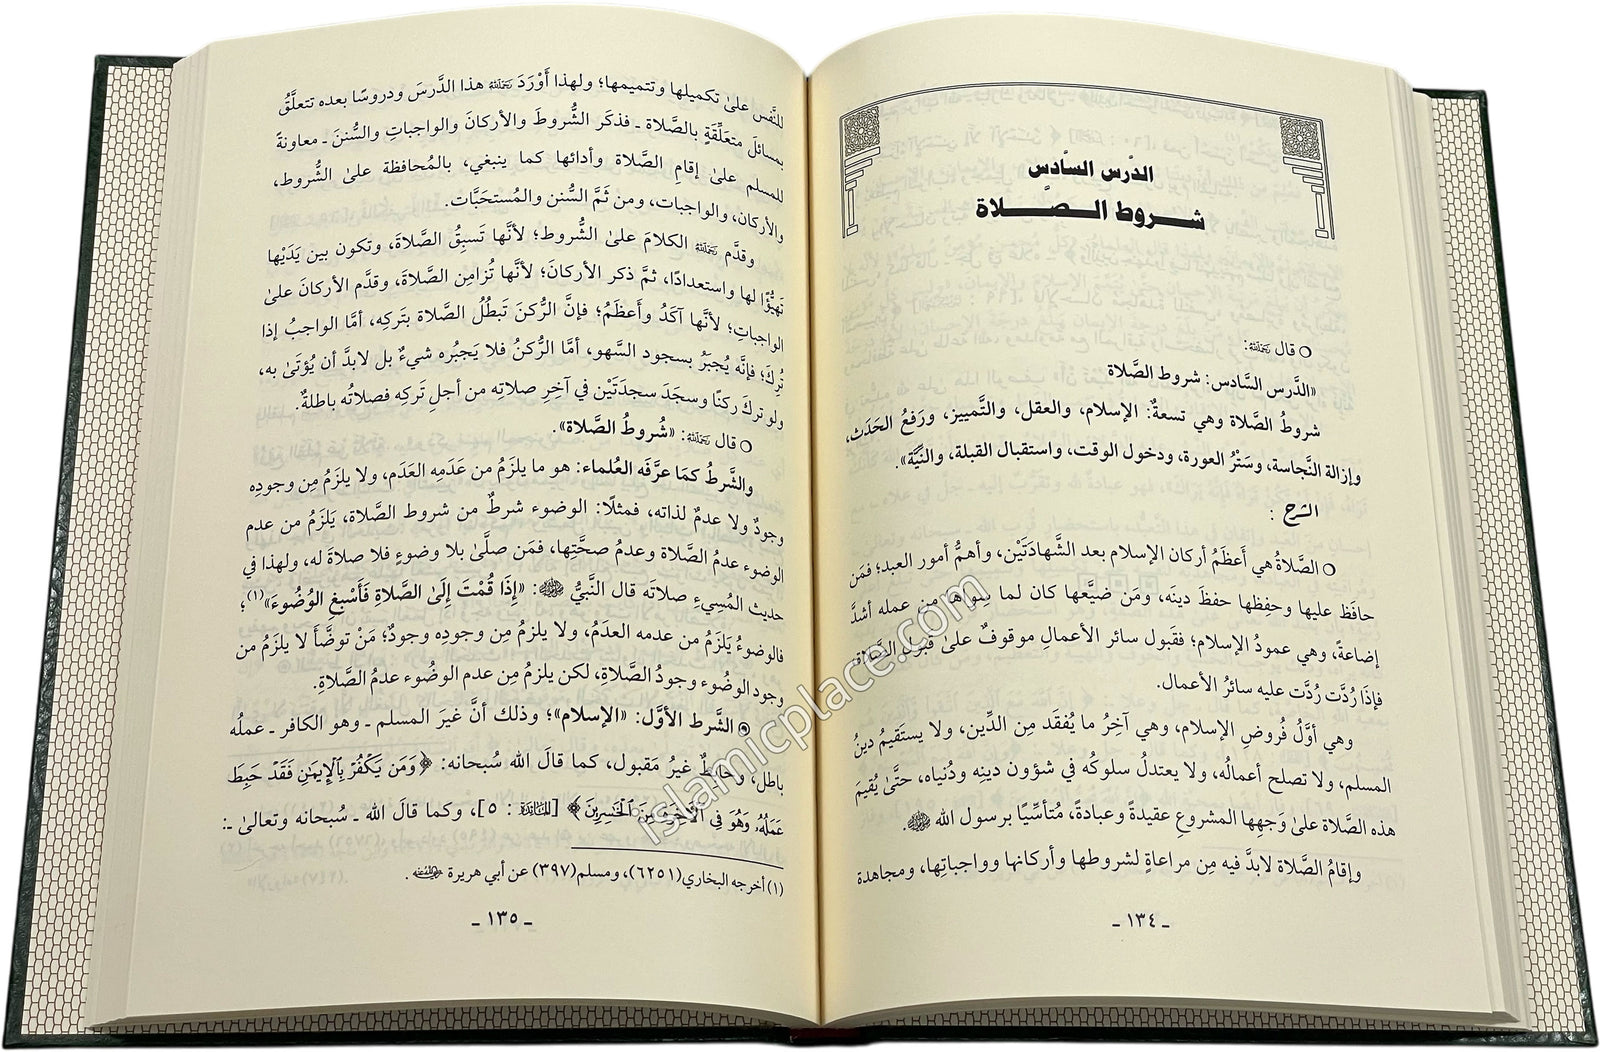 الدّرس السّادس
شروط الصلاة
○ قال رَحِمَهُ اللهُ:
«الدَّرس السَّادس: شروط الصَّلاة
شروطُ الصَّلاة وهي تسعةٌ: الإسلام، والعقل، والتَّمييز، ورَفعُ الحَدَث،
وإزالة النَّجاسة، وسَتْرُ العورة، ودخول الوقت، واستقبال القبلة، والنِّيَّة».
الشرح :
○ الصَّلاةُ هي أَعظَمُ أركان الإسلام بعد الشَّهادَتَيْن، وأهمُّ أمور العبد؛ فمَن
حافَظ عليها وحفِظها حفظَ دينَه، ومَن ضيَّعها كان لما سِواها من عمله أشدَّ
إضاعةً، وهي عمودُ الإسلام؛ فقَبول سائر الأعمالِ موقوفٌ علىٰ قبولِ الصَّلاة،
فإذَا رُدَّت رُدَّت عليه سائرُ الأعمال.
وهي أوَّلُ فُروضِ الإسلام، وهي آخِرُ ما يُفقَد مِن الدِّين، ولا يستَقيمُ دينُ
المسلم، ولا تصلح أعمالُه، ولا يعتدلُ سلوكُه في شؤون دينِه ودُنياه، حتَّىٰ يُقيمَ
هذه الصَّلاة علىٰ وَجهِها المشروعِ عقيدةً وعبادةً، مُتأسِّيًا برسول الله ﷺ.
وإقامُ الصَّلاة لابدَّ فيه مِن مراعاةٍ لشروطها وأركانها وواجباتِها، ومجاهدة
ـ ١٣٤ ـ
للنَّفْس علىٰ تكميلها وتتميمها؛ ولهذا أَوْرَدَ رَحِمَهُ اللهُ هذا الدَّرسَ ودروسًا بعده تتعلَّقُ
بمسائلَ متعَلِّقةٍ بالصَّلاة ـ فذكَر الشُّروطَ والأركانَ والواجباتِ والسُّننَ ـ معاونةً
للمسلم علىٰ إقامِ الصَّلاة وأدائها كما ينبغي، بالمُحافظة علىٰ الشُّروط،
والأركان، والواجبات، ومن ثَمَّ السُّنن والمُستحَبَّات.
وقدَّم رَحِمَهُ اللهُ الكلامَ علىٰ الشُّروط؛ لأنَّها تَسبِقُ الصَّلاةَ، وتكون بين يَدَيْها
تَهيُّؤًا لها واستعدادًا، ثمَّ ذكر الأركانَ؛ لأنَّها تُزامِن الصَّلاةَ، وقدَّم الأركانَ علىٰ
الواجباتِ؛ لأنَّها آكَدُ وأعظَمُ؛ فإنَّ الرُّكنَ تَبطُلُ الصَّلاة بتَركِه، أمَّا الواجبُ إذا
تُرِكَ؛ فإنَّه يُجبَرُ بسجود السَّهو، أمَّا الرُّكنُ فلا يَجبُره شيءٌ بل لابدَّ أن يُؤتَىٰ به،
ولو تركَ ركنًا وسجَدَ سجدَتَيْن في آخِرِ صلاتِه من أجلِ تَركِه فصلاتُه باطلةٌ.
○ قال رَحِمَهُ اللهُ: «شُروطُ الصَّلاة».
والشَّرطُ كمَا عرَّفَه العُلماء: هو ما يلزَمُ من عَدَمِه العَدَم، ولا يلزَمُ مِن وجودِه
وجودٌ ولا عدمٌ لذاته، فمثلًا: الوضوء شرطٌ من شروط الصَّلاة، يَلزَمُ من عدم
الوضوء عدمُ الصَّلاة وعدمُ صحَّتِها، فمَن صلَّىٰ بلا وضوءٍ فلا صلاةَ له، ولهذا في
حديث المُسِيءِ صلاتَه قال النَّبيُّ ﷺ: «إِذَا قُمْتَ إِلَىٰ الصَّلاةِ فَأَسْبِغِ الوُضُوءَ»(١)؛
فالوضوءُ يَلزَمُ من عدمه العدَمُ، ولا يلزم مِن وجودِه وجودٌ؛ مَنْ توضَّأَ لا يلزَمُ من
وجود الوضُوء وجودُ الصَّلاةِ، لكن يلزمُ مِن عدم الوضُوء عدمُ الصَّلاةِ.
◉ الشَّرط الأوَّل: «الإسلام»؛ وذلك أنَّ غيرَ المسلم ـ وهو الكافر ـ عملُه
باطل، وحابطٌ غيرُ مَقبول، كما قالَ الله سُبحانه: ﴿وَمَن يَكْفُرْ بِٱلْإِيمَٰنِ فَقَدْ حَبِطَ
عَمَلُهُۥ وَهُوَ فِى ٱلْأَخِرَةِ مِنَ ٱلْخَٰسِرِينَ﴾ [المَائدة : ٥]، وكما قالَ الله ـ سُبحانه وتعالىٰ ـ:
(١) أخرجه البخاري (٦٢٥١)، ومسلم (٣٩٧) عن أبي هريرة رضي الله عنه.
ـ ١٣٥ ـ
islamicplace.com